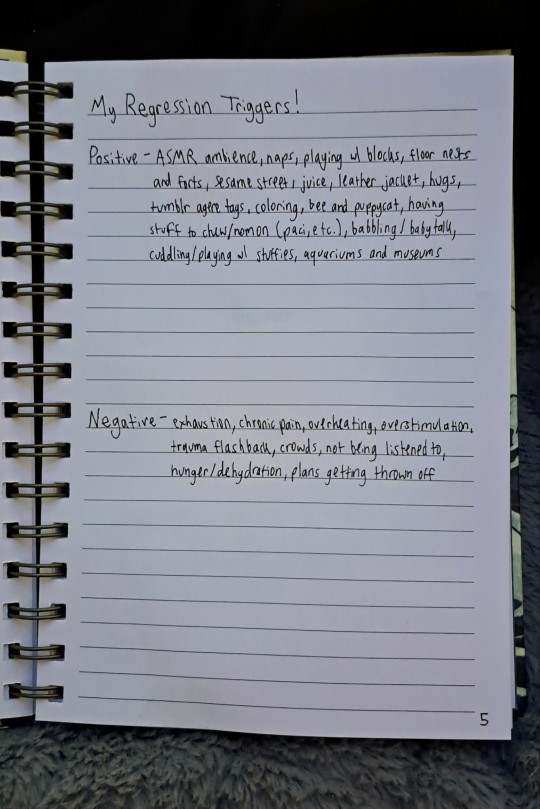 My Regression Triggers!
Positive - ASMR ambience, naps, playing w/ blocks, floor nests
and forts, sesame street, juice, leather jacket, hugs,
tumblr agere tags, coloring, bee and puppycat, having
stuff to chew/nomon (paci, etc.), babbling/babytalk,
cuddling/playing w/ stuffies, aquariums and museums
Negative - exhaustion, chronic pain, overheating, overstimulation,
trauma flashback, crowds, not being listened to,
hunger/dehydration, plans getting thrown off
5